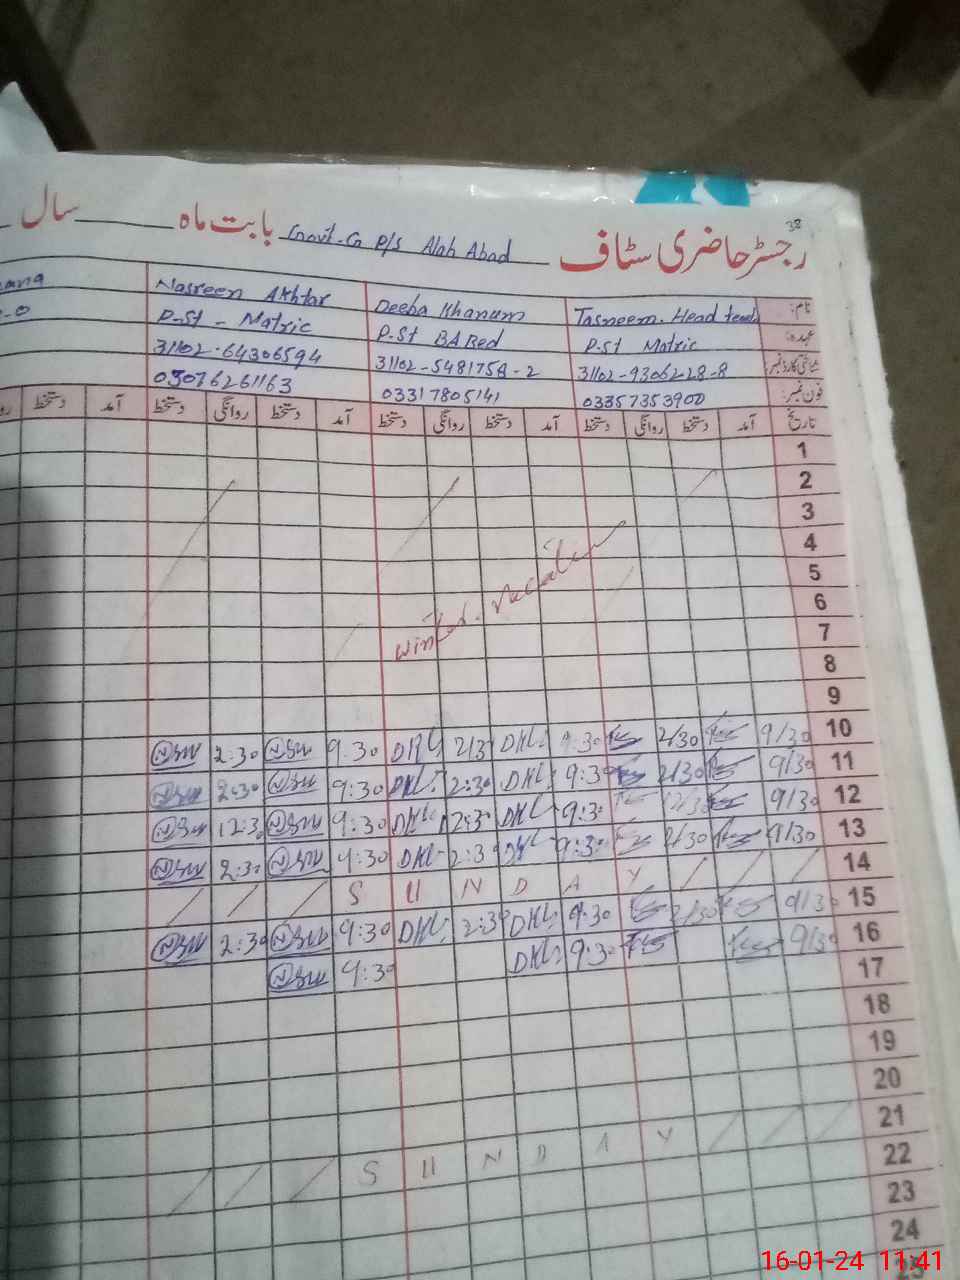 38
رجسٹر حاضری سٹاف Govt. G P/S Alah Abad بابت ماہ سال
نام: Tasneem. Head Deeba Khanum Nasreen Akhtar
عہدہ: P.St Matric P.St BA Bed P.St - Matric
شناختی کارڈ نمبر: 31102-9306228-8 31102-5481758-2 31102-64306594
فون نمبر: 03357353900 03317805141 03076261163
تاریخ آمد دستخط روانگی دستخط آمد دستخط روانگی دستخط آمد دستخط روانگی دستخط آمد دستخط
1
2
3
4
5
6
7
winter. vacation
8
9
10 9/30 2/30 9:30 DKL 2/3 DKL 9.30 2:30
11 9/30 2/30 9:30 DKL 2:30 DKL 9:30 2:30
12 9/30 12/30 9:30 DKL 12:30 DKL 9:30 12:30
13 9/30 2/30 9:30 DKL 2:30 DKL 9:30 2:30
14 S U N D A Y
15 9/30 2/30 9:30 DKL 2:30 DKL 9:30 2:30
16 9/30 9:30 DKL 9:30
17
18
19
20
21 S U N D A Y
22
23
24
25
16-01-24 11:41